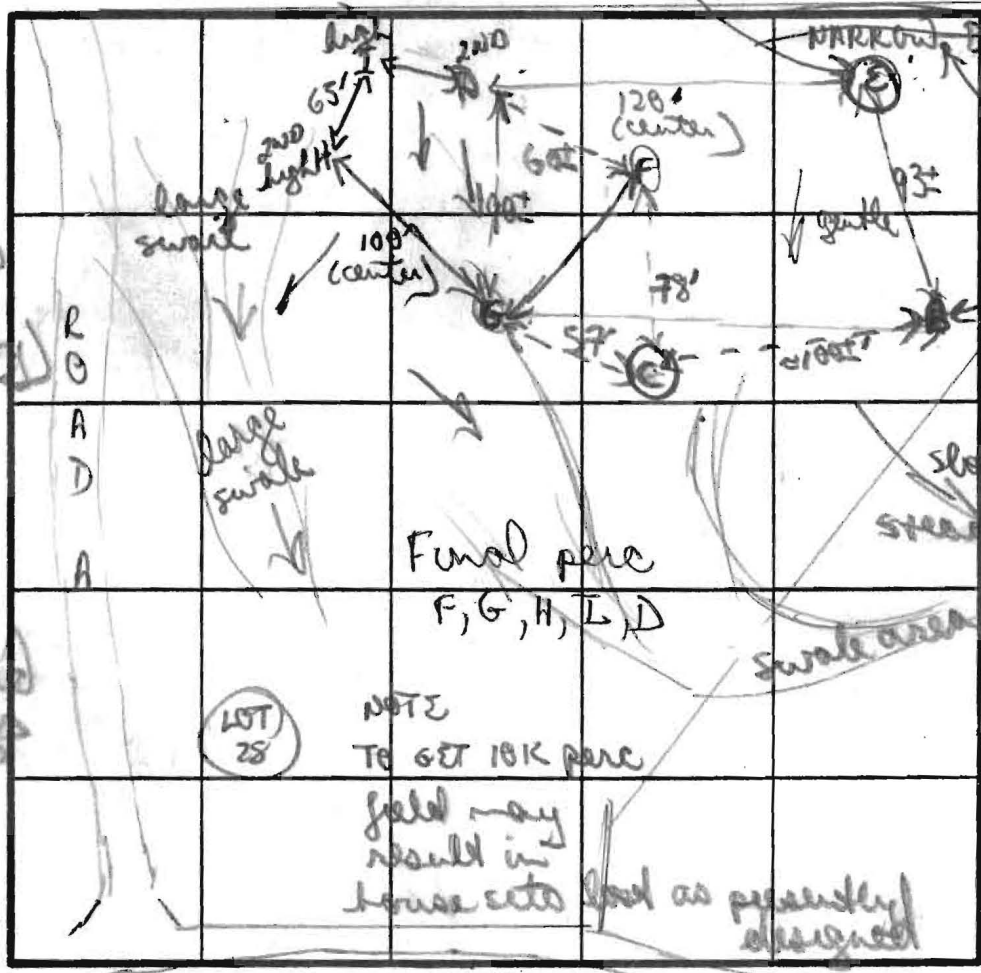 high
I
2ND
D
NARROW
E
65'
2ND
high H
120'
(center)
60±
F
90±
93±
large
swail
gentle
100'
(center)
G
78'
57'
C
B
≈100±'
ROAD A
large
swale
Final perc
F, G, H, I, D
swale area
LOT
28
NOTE
TO GET 10K perc
field may
result in
house
as presently
designed